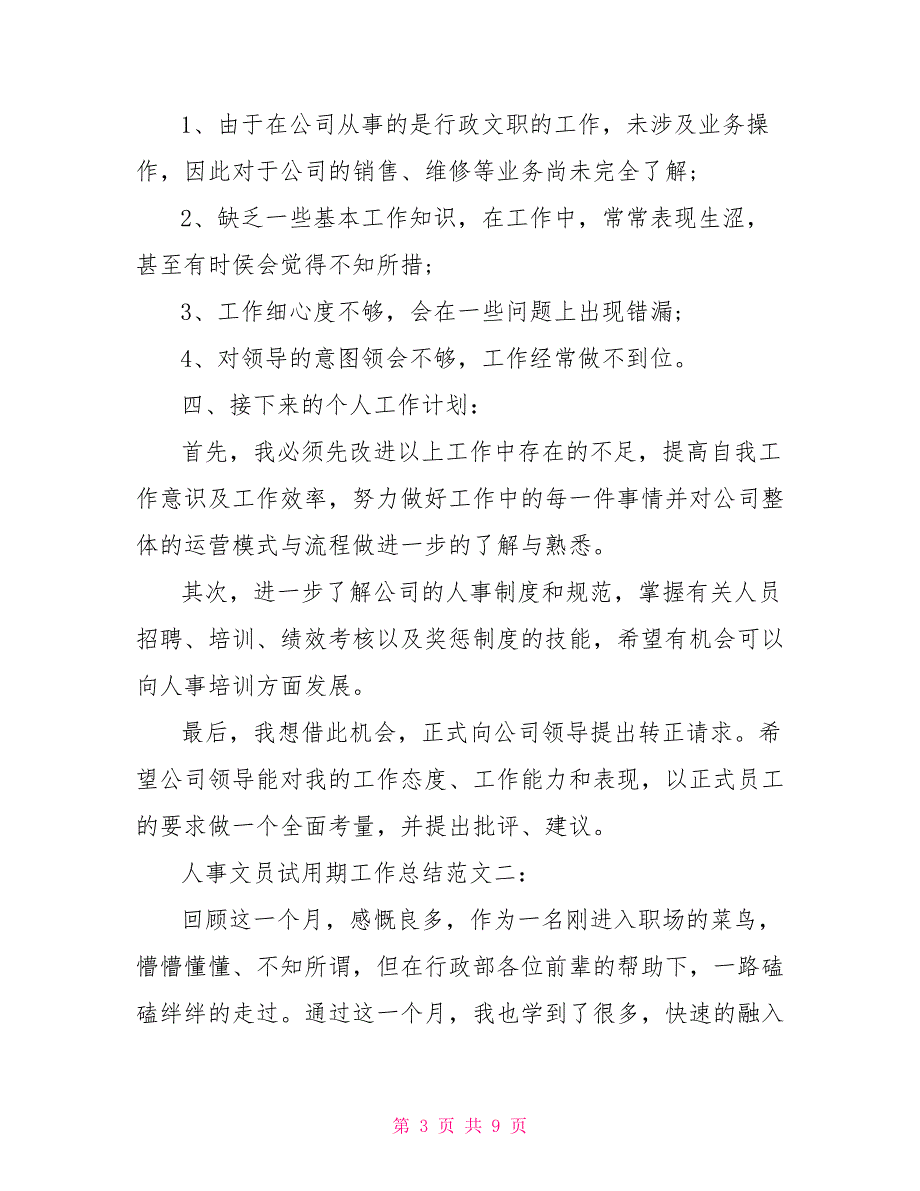 1、由于在公司从事的是行政文职的工作，未涉及业务操
作，因此对于公司的销售、维修等业务尚未完全了解;
2、缺乏一些基本工作知识，在工作中，常常表现生涩，
甚至有时侯会觉得不知所措;
3、工作细心度不够，会在一些问题上出现错漏;
4、对领导的意图领会不够，工作经常做不到位。
四、接下来的个人工作计划：
首先，我必须先改进以上工作中存在的不足，提高自我工
作意识及工作效率，努力做好工作中的每一件事情并对公司整
体的运营模式与流程做进一步的了解与熟悉。
其次，进一步了解公司的人事制度和规范，掌握有关人员
招聘、培训、绩效考核以及奖惩制度的技能，希望有机会可以
向人事培训方面发展。
最后，我想借此机会，正式向公司领导提出转正请求。希
望公司领导能对我的工作态度、工作能力和表现，以正式员工
的要求做一个全面考量，并提出批评、建议。
人事文员试用期工作总结范文二：
回顾这一个月，感慨良多，作为一名刚进入职场的菜鸟，
懵懵懂懂、不知所谓，但在行政部各位前辈的帮助下，一路磕
磕绊绊的走过。通过这一个月，我也学到了很多，快速的融入
第 3 页 共 9 页